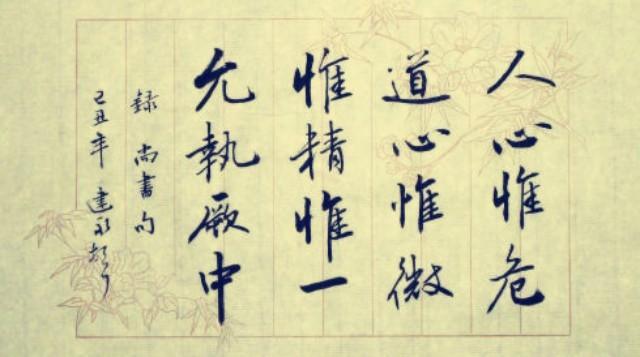 人心惟危
道心惟微
惟精惟一
允執厥中
錄尚書句
己丑年建